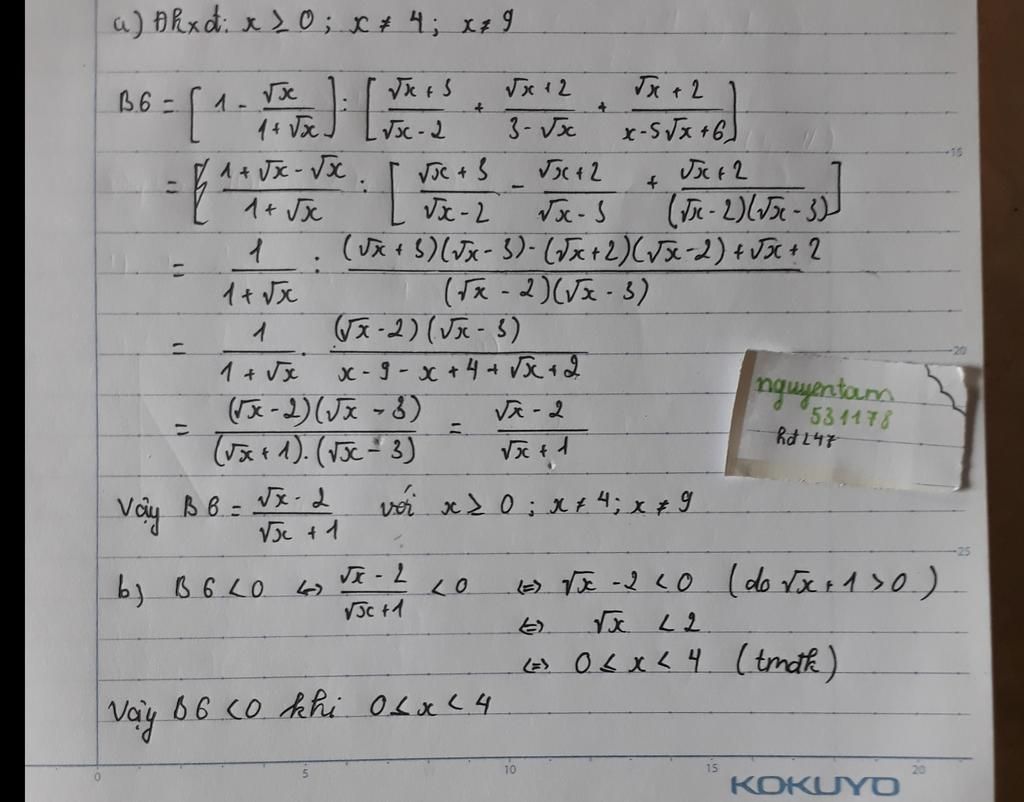 a) Đkxđ: x ≥ 0 ; x ≠ 4 ; x ≠ 9
B6 = [ 1 - √x/(1+√x) ] : [ (√x+3)/(√x-2) + (√x+2)/(3-√x) + (√x+2)/(x-5√x+6) ]
= [ (1+√x-√x)/(1+√x) : [ (√x+3)/(√x-2) - (√x+2)/(√x-3) + (√x+2)/((√x-2)(√x-3)) ]
= 1/(1+√x) : ((√x+3)(√x-3)-(√x+2)(√x-2)+√x+2)/((√x-2)(√x-3))
= 1/(1+√x) . ((√x-2)(√x-3))/(x-9-x+4+√x+2)
= ((√x-2)(√x-3))/((√x+1).(√x-3)) = (√x-2)/(√x+1)
Vậy B6 = (√x-2)/(√x+1) với x ≥ 0 ; x ≠ 4 ; x ≠ 9
b) B6 < 0 ⇔ (√x-2)/(√x+1) < 0 ⇔ √x - 2 < 0 (do √x + 1 > 0)
⇔ √x < 2
⇔ 0 ≤ x < 4 (tmđk)
Vậy B6 < 0 khi 0 ≤ x < 4
nguyentam
531178
15
20
25
0 5 10 15 20
KOKUYO